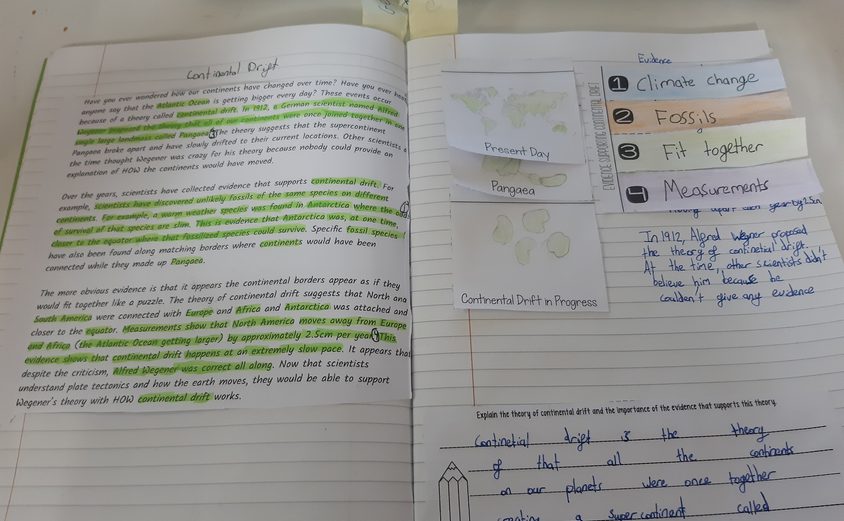 Continental Drift
Have you ever wondered how our continents have changed over time? Have you ever hea
anyone say that the Atlantic Ocean is getting bigger every day? These events occur
because of a theory called continental drift. In 1912, a German scientist named Alfred
Wegener proposed the theory that all of our continents were once joined together in one
single large landmass called Pangaea. The theory suggests that the supercontinent
Pangaea broke apart and have slowly drifted to their current locations. Other scientists a
the time thought Wegener was crazy for his theory because nobody could provide an
explanation of HOW the continents would have moved.
Over the years, scientists have collected evidence that supports continental drift. For
example, scientists have discovered unlikely fossils of the same species on different
continents. For example, a warm weather species was found in Antarctica where the
of survival of that species are slim. This is evidence that Antarctica was, at one time,
closer to the equator where that fossilized species could survive. Specific fossil species
have also been found along matching borders where continents would have been
connected while they made up Pangea.
The more obvious evidence is that it appears the continental borders appear as if they
would fit together like a puzzle. The theory of continental drift suggests that North and
South America were connected with Europe and Africa and Antarctica was attached and
closer to the equator. Measurements show that North America moves away from Europe
and Africa (the Atlantic Ocean getting larger) by approximately 2.5cm per year. This
evidence shows that continental drift happens at an extremely slow pace. It appears that
despite the criticism, Alfred Wegener was correct all along. Now that scientists
understand plate tectonics and how the earth moves, they would be able to support
Wegener's theory with HOW continental drift works.
Present Day
Pangaea
Continental Drift in Progress
EVIDENCE SUPPORTING CONTINENTAL DRIFT
Evidence
1 Climate change
2 Fossils
3 Fit together
4 Measurements
moving apart each year by 2.5cm
In 1912, Algred Wegner proposed
the theory of continetial drift.
At the time, other scientists didn't
believe him because he
couldn't give any evidence
Explain the theory of continental drift and the importance of the evidence that supports this theory.
Continetial drift is the theory
of that all the continents
on our planets were once together
creating a super continent called